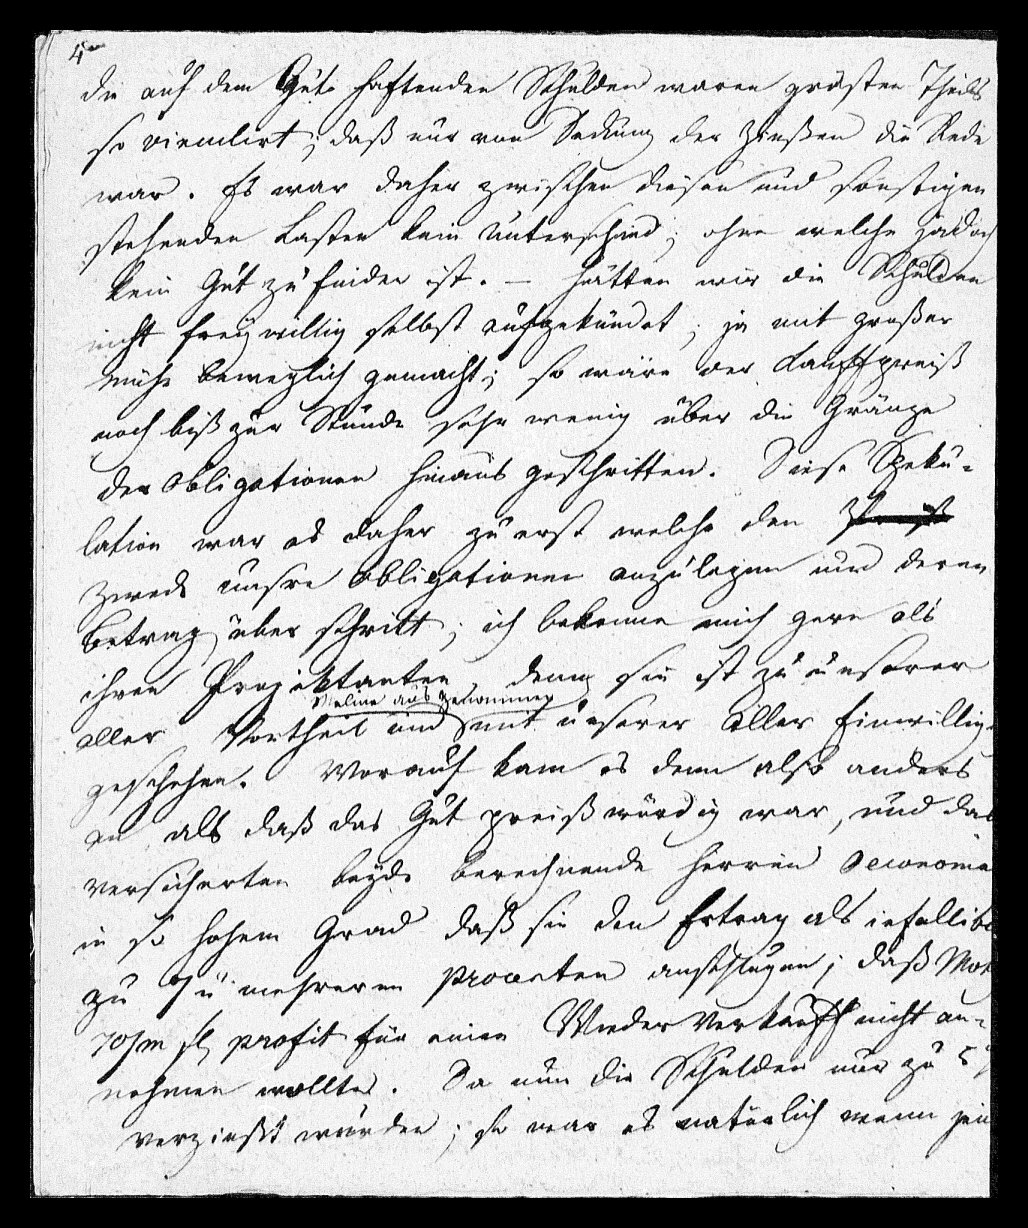 4
die auf dem Gute haftenden Schulden waren grösten Theils
so vinculirt; daß nur von Deckung der Zinßen die Rede
war. Es war daher zwischen diesen und sonstigen
stehenden Lasten kein Unterschied; ohne welche jedoch
kein Gut zu finden ist. – Hätten wir die Schulden
nicht freywillig selbst aufgekündet, ja mit großer
Mühe beweglich gemacht; so wäre der Kauffpreiß
noch biß zur Stunde sehr wenig über die Gränze
der Obligationen hinaus geschritten. Diese Speku-
lation war es daher zuerst welche den
Zweck unsre Obligationen anzulegen und deren
Betrag über schritt; ich bekenne mich gern als
ihren Projektanten, denn sie ist zu unserer
Meline ausgenommen
aller Vortheil und mit unserer aller Einwillig-
geschehen. Worauf kam es denn also anders
an, als daß das Gut preißwürdig war, und das
versicherten beyde berechnende Herren Oeconome
in so hohem Grad daß sie den Ertrag als infallibe
zu 7 u mehreren Procenten anschlugen; daß
70/m fl profit für einen Wieder Verkauff nicht an-
nehmen wollte. Da nun die Schulden nur zu 5
verzinßt wurden; so war es natürlich wenn